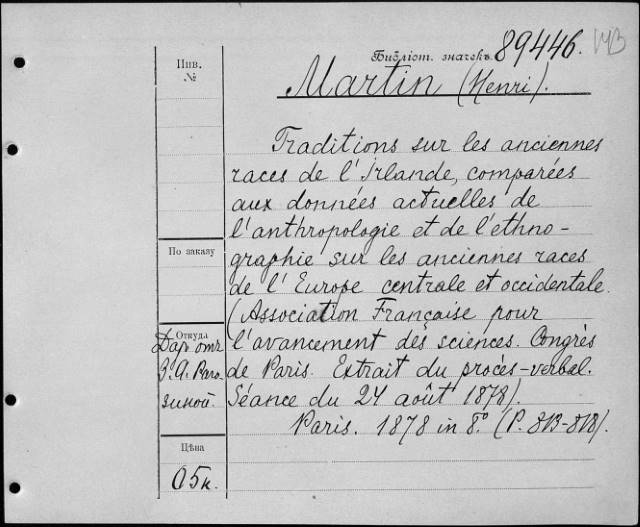 Библіот. значекъ 89446.
Инв.
№
Martin (Henri).
Traditions sur les anciennes
races de l'Irlande, comparées
aux données actuelles de
l'anthropologie et de l'ethno-
graphie sur les anciennes races
de l'Europe centrale et occidentale.
(Association Française pour
l'avancement des sciences. Congrès
de Paris. Extrait du procès-verbal.
Séance du 24 août 1878).
Paris. 1878 in 8.° (P. 813-818).
По заказу
Откуда
Даръ отъ
З. А. Раго-
зиной.
Цѣна
05к.